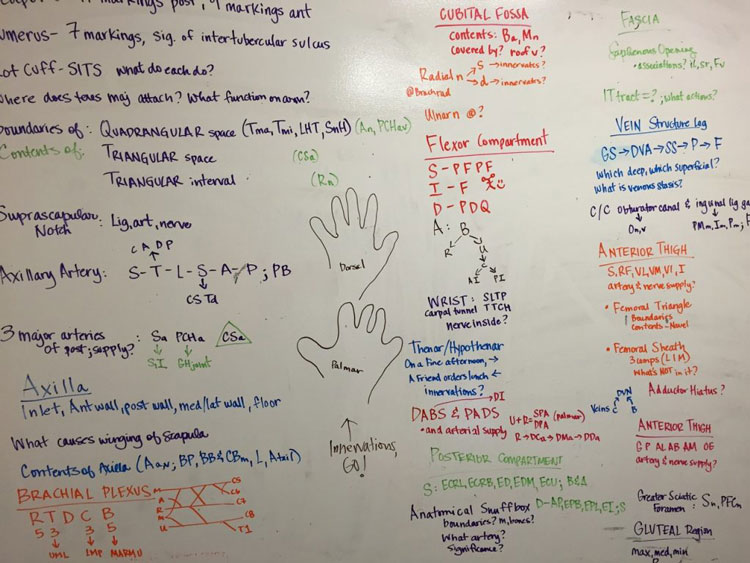 markings post, 9 markings ant
umerus- 7 markings, sig. of intertubercular sulcus
ot Cuff- SITS what do each do?
where does teres maj attach? What function on arm?
boundaries of: QUADRANGULAR space (Tma, Tmi, LHT, SnH) (An, PCHav)
Contents of: TRIANGULAR space (CSa)
TRIANGULAR interval (Rn)
Suprascapular Notch: Lig, art, nerve
CADP
Axillary Artery: S-T-L-S-A-P; PB
CSTd
3 major arteries of post; supply? Sa PCHa CSa
S,I GHjoint
Axilla
Inlet, Ant wall, post wall, med/lat wall, floor
What causes winging of scapula
Contents of Axilla (AaN; BP, BB&CBm, L, Atail)
BRACHIAL PLEXUS
R T D C B
5 3 3 5
UML LMP MARMU
M
A
R
M
U
C5
C6
C7
C8
T1
Dorsal
Palmar
Innervations, GO!
CUBITAL FOSSA
contents: Ba, Mn
covered by? roof v?
Radial n S → innervates?
@Brachrad d → innervates?
Ulnar n @?
Flexor Compartment
S-PFPF
I-F
D-PDQ
A: B
R U
C
AI PI
WRIST: SLTP
carpal tunnel TTCH
nerve inside?
Thenar/Hypothenar
On a Fine afternoon, →
A Friend orders lunch ←
innervations? → DI
DABS & PADS
• and arterial supply
U+R= SPA (palmar)
DPA
R→DCa→DMa→DDa
POSTERIOR COMPARTMENT
S: ECRL, ECRB, ED, EDM, ECU; B&A
Anatomical Snuffbox D-AP, EPB, FPL, EI; S
boundaries? m, bones?
What artery?
Significance?
FASCIA
Saphenous Opening
• associations? il, sr, Fv
IT tract = ?; what actions?
VEIN Structure Leg
GS→DVA→SS→P→F
Which deep, which superficial?
What is venous stasis?
C/C obturator canal & inguinal lig ga
On,v PMm, Im, Pm; F
ANTERIOR THIGH
S, RF, VL, VM, VI, I
artery & nerve supply?
• Femoral Triangle
Boundaries
contents-Navel
• Femoral Sheath
3 comps (LIM)
What's NOT in it?
DVN
Veins C B
Adductor Hiatus?
ANTERIOR THIGH
GP AL AB AM OE
artery & nerve supply?
Greater Sciatic Foramen: Sn, PFCn
GLUTEAL Region
max, med, min